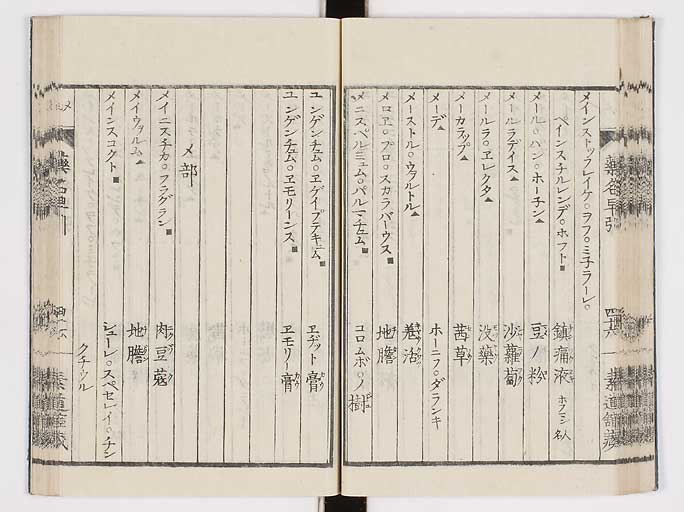 メインストッフレイケ。ヲフ。ミ子ラーレ。
ペインスチルレンデ。ホフト■ 鎮痛液 ホフマン名人
メール。ハン。ホーチン▲ 豆ノ粉
メールラデイス▲ 沙蘿蔔
メールラ。ヱレクタ▲ 没藥
メーカラップ▲ 茜草
メーデ▲ ホーニフ。ダランキ
メーストル。ウヲルトル▲ 羗活
メロヱ。プロ。スカラバーウス■ 地膽
メニスペルミュム。パルマチュム■ コロムボ。ノ樹
ユンゲンチュム。ヱゲイプテキュム■ ヱヂット膏
ユンゲンチュム。ヱモリーンス■ ヱモリー膏
メ部
メイニスチカ。フラグラン■ 肉豆蔲
メイウヲルム▲ 地膽
メインスコクト■ シューレ。スペセレイ。チン
クチウル
藥名早引
四十六